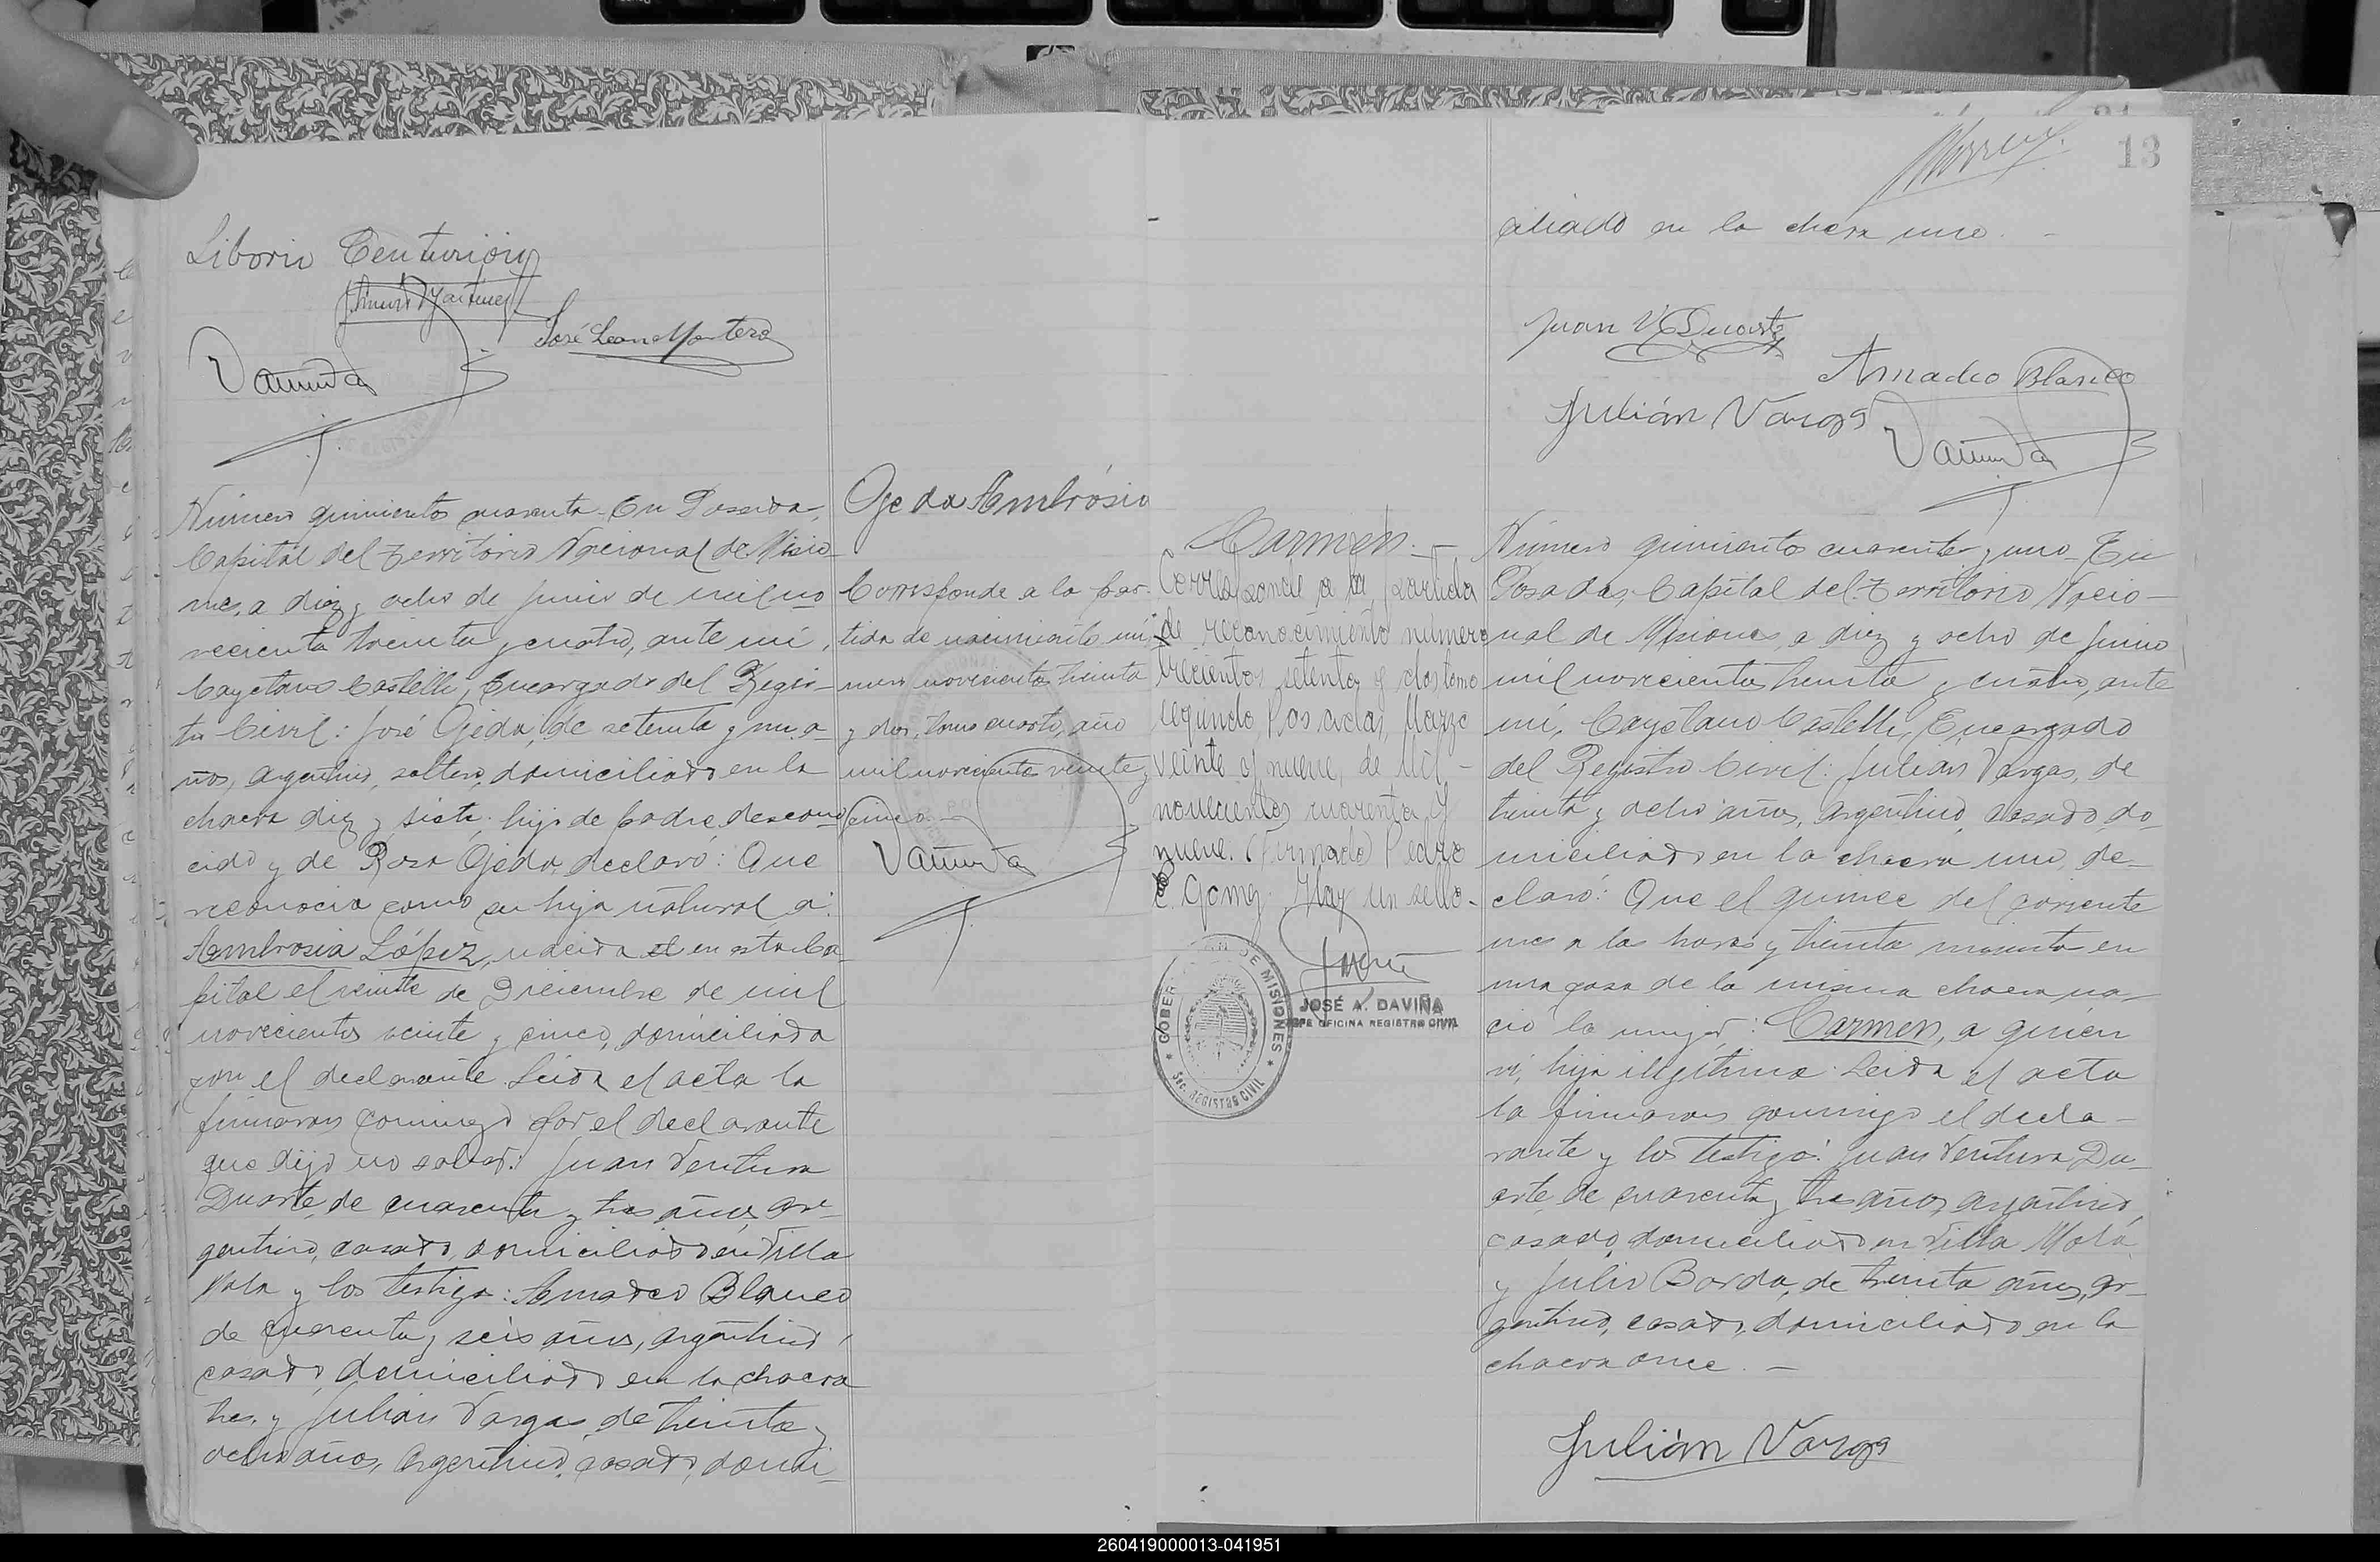 Liborio Centurión
José Leon Montero
Número quinientos cuarenta. En Posadas,
Capital del Territorio Nacional de Misio-
nes, a diez y ocho de Junio de mil no-
vecientos treinta y cuatro, ante mí,
Cayetano Castelli, Encargado del Regis-
tro Civil: José Ojeda, de setenta y un a-
ños, argentino, soltero, domiciliado en la
chacra diez y siete, hijo de padre descono-
cido y de Rosa Ojeda, declaró: Que
reconocia como su hija natural a:
Ambrosia López, nacida en esta Ca-
pital el veinte de Diciembre de mil
novecientos veinte y cinco, domiciliada
con el declarante. Leida el acta la
firmaron conmigo por el declarante
que dijo no saber: Juan Ventura
Duarte, de cuarenta y tres años, ar-
gentino, casado, domiciliado en Villa
Mola y los testigos: Amadeo Blanco
de cuarenta y seis años, argentino,
casado, domiciliado en la chacra
tres, y Julian Vargas, de treinta y
ocho años, argentino, casado, domi-
Ojeda Ambrósia
Corresponde a la par-
tida de nacimiento nú-
mero novecientos treinta
y dos, tomo cuarto, año
mil novecientos veinte y
cinco.-
13
ciliado en la chacra uno. -
Juan V. Duarte
Amadeo Blanco
Julián Vargas
Carmen.-
Corresponde a la partida
de reconocimiento número
trecientos setenta y dos tomo
segundo Posadas, Marzo
veinte y nueve, de Mil -
novecientos cuarenta y
nueve. Firmado Pedro
E. Gomez. Hay un sello.-
GOBERNACIÓN DE MISIONES
SEC. REGISTRO CIVIL
JOSÉ A. DAVIÑA
JEFE OFICINA REGISTRO CIVIL
Número quinientos cuarenta y uno. En
Posadas, Capital del Territorio Nacio-
nal de Misiones, a diez y ocho de Junio
mil novecientos treinta y cuatro, ante
mí, Cayetano Castelli, Encargado
del Registro Civil: Julian Vargas, de
treinta y ocho años, argentino, casado, do-
miciliado en la chacra uno, de-
claró: Que el quince del corriente
mes a las horas y treinta minutos en
una casa de la misma chacra na-
ció la mujer: Carmen, a quien
ví, hija ilegítima. Leida el acta
la firmaron conmigo el decla-
rante y los testigos: Juan Ventura Du-
arte, de cuarenta y tres años, argentino,
casado, domiciliado en Villa Mola
y Julio Borda, de treinta años, ar-
gentino, casado, domiciliado en la
chacra once. -
Julián Vargas
260419000013-041951